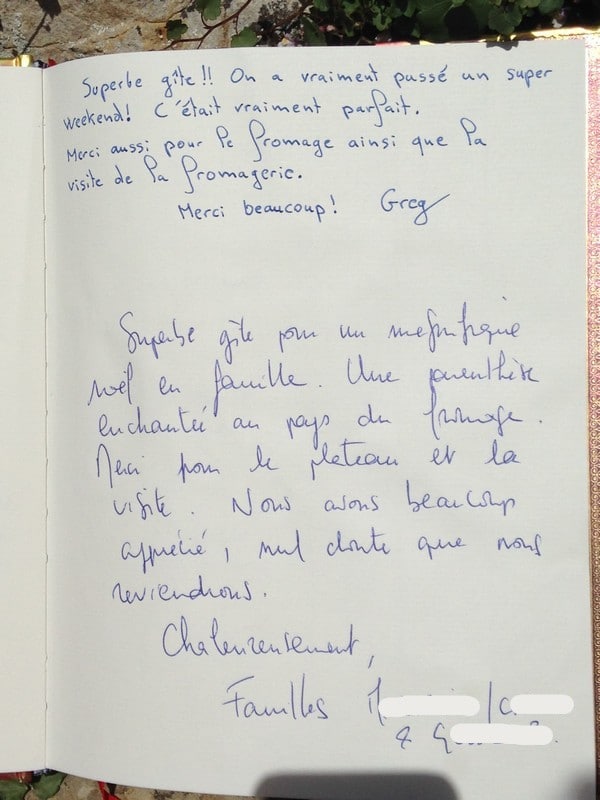 Superbe gîte!! On a vraiment passé un super
weekend! C'était vraiment parfait.
Merci aussi pour le fromage ainsi que la
visite de la fromagerie.
Merci beaucoup! Greg
Superbe gîte pour un magnifique
noël en famille. Une parenthèse
enchantée au pays du fromage.
Merci pour le plateau et la
visite. Nous avons beaucoup
apprécié, nul doute que nous
reviendrons.
Chaleureusement,
Familles
&